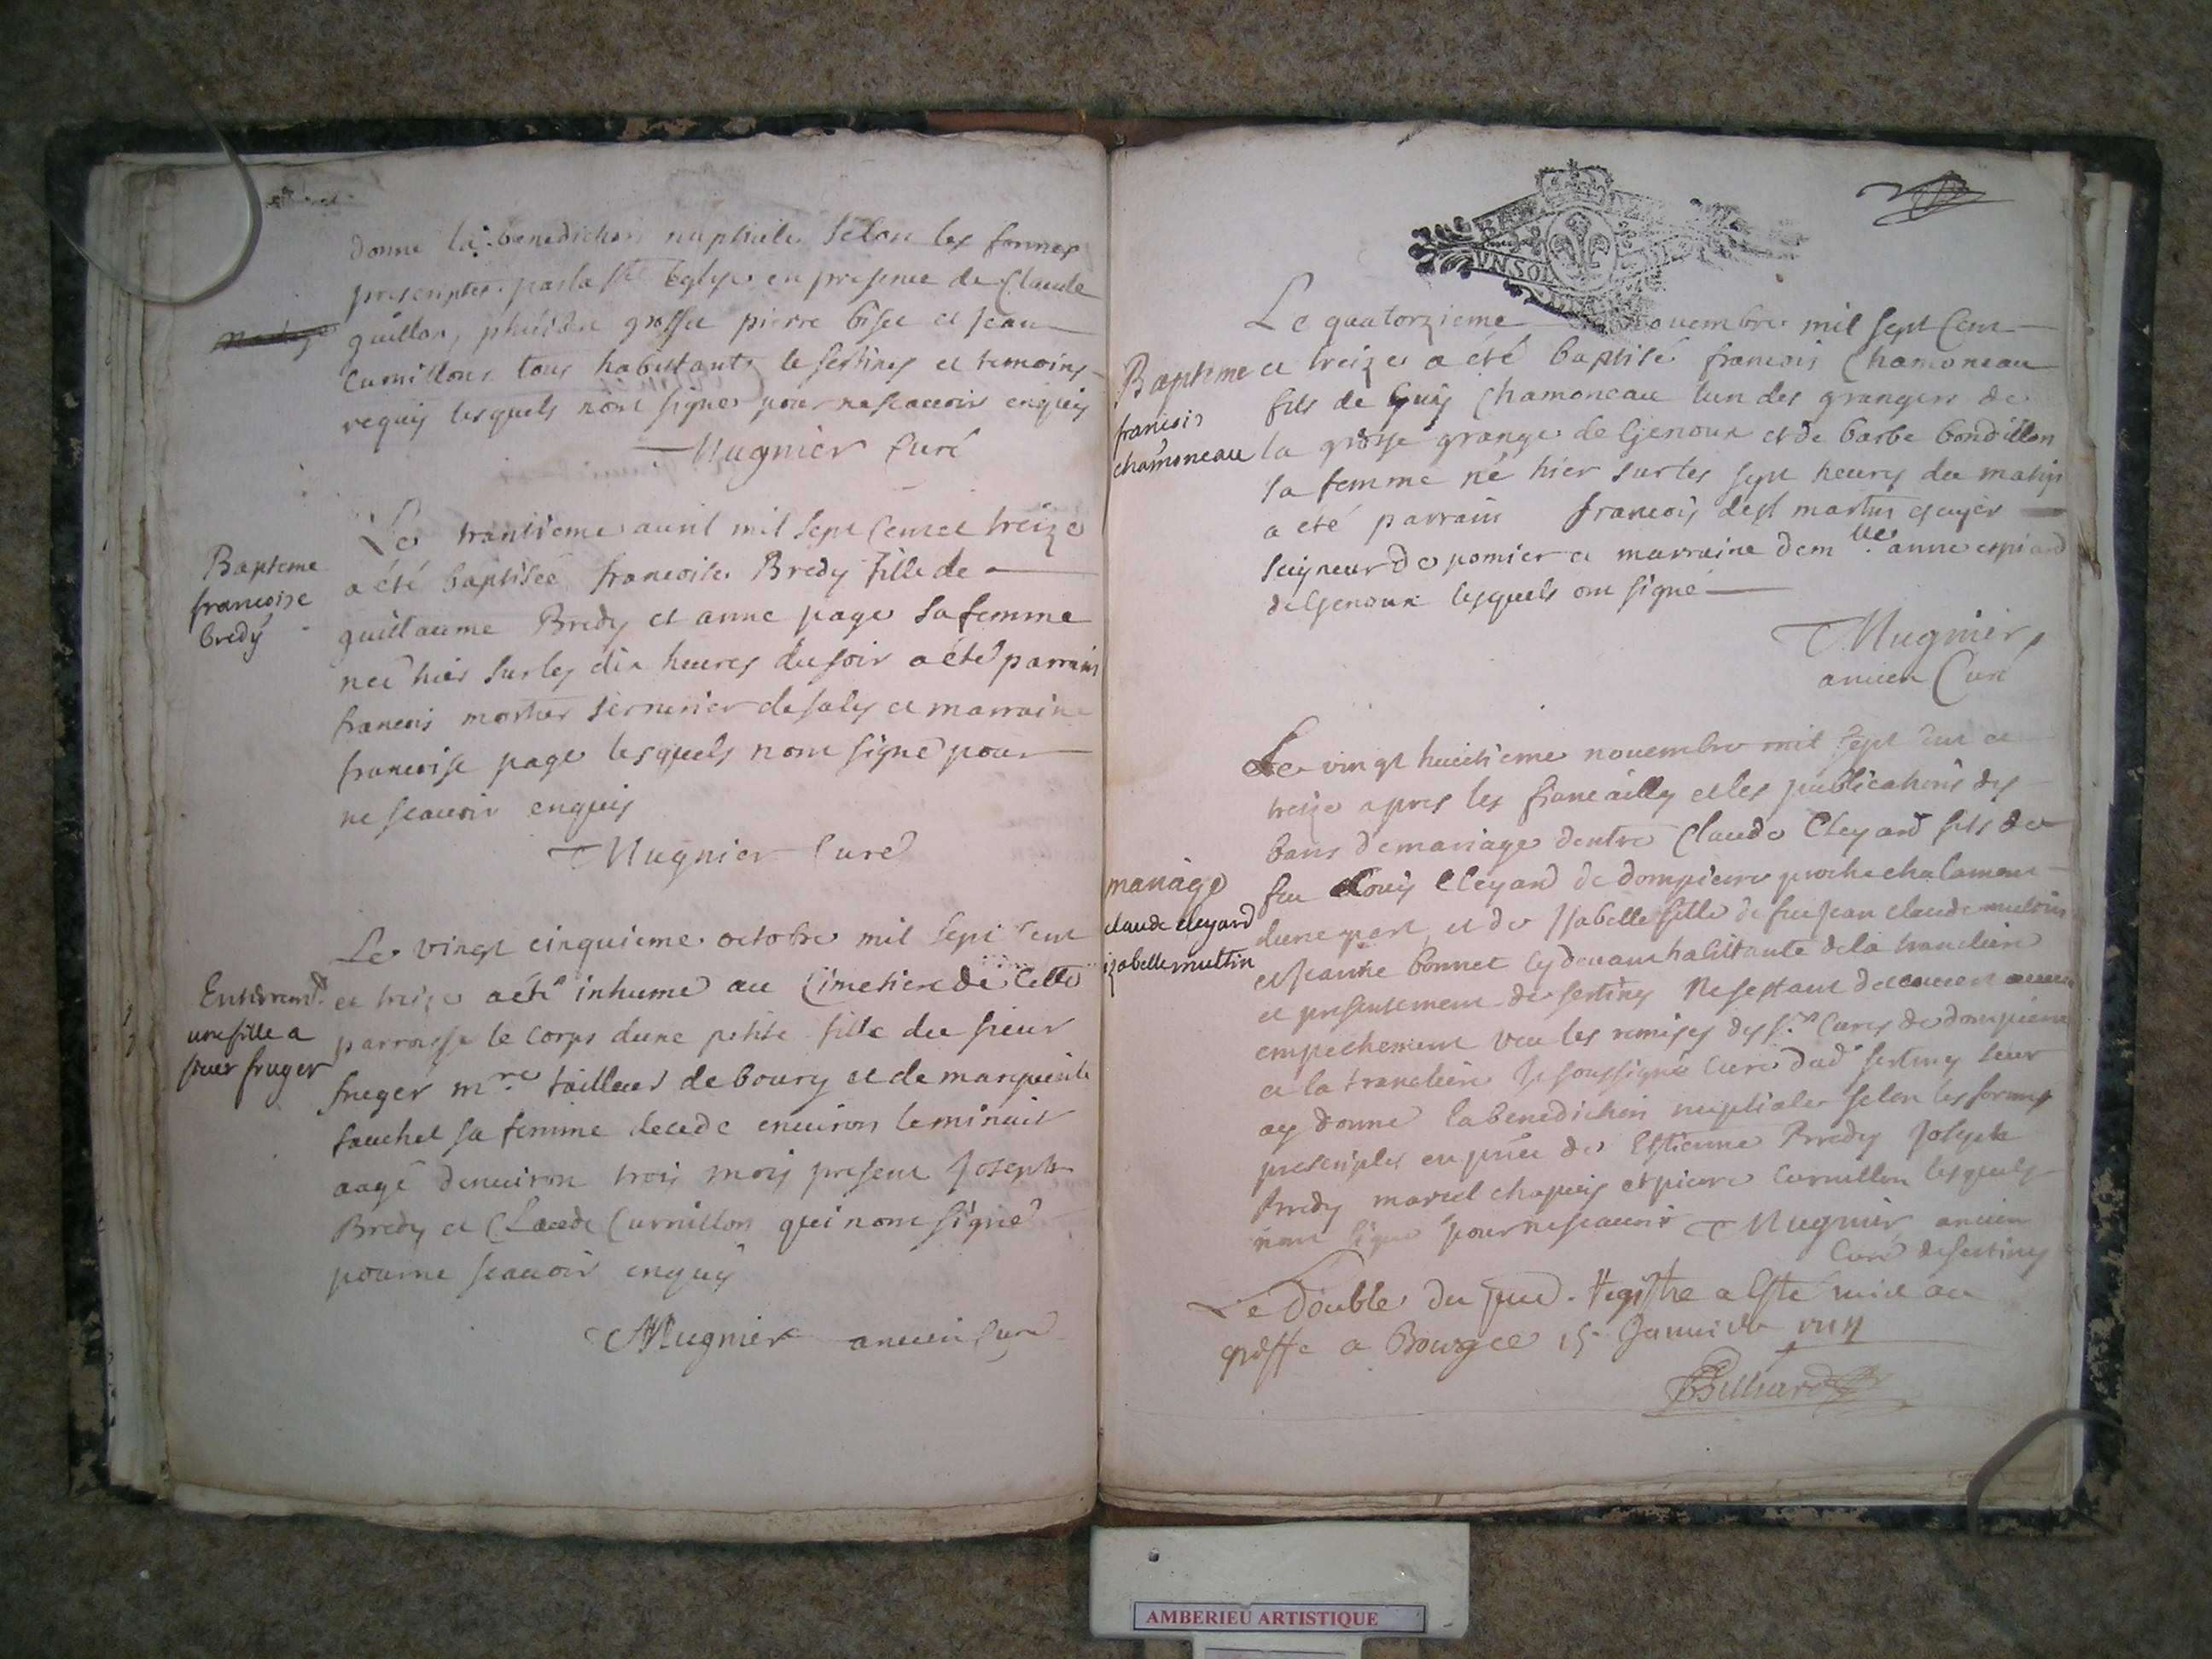 donne la benediction nuptiale selon les formes
prescriptes par la ste Eglise en presence de Claude
guillon, grosse pierre bisce et jean
Curnillons tous habistants de sertines et temoins
requis lesquels nont signes pour ne scauoir enquis
Mugnier Curé
Bapteme
francoise
bredy
Le trantieme auril mil sept cent et treize
a été baptisée francoise Bredy fille de
guillaume Bredy et anne page sa femme
née hier sur les dix heures du soir a été parrain
francois mortier serrurier de et marraine
francoise page lesquels nont signé pour
ne scauoir enquis
Mugnier Curé
Enterremt
une fille a
sieur fruger
Le vingt cinquieme octobre mil sept cent
et treize a été inhume au Cimetiere de Cette
parroisse le corps dune petite fille du sieur
fruger mre tailleur de bourg et de marguerite
fauchet sa femme decede enuiron le minuit
aagé denuiron trois mois present Joseph
Bredy et Claude Curnillon qui nont signé
pour ne scauoir enquis
Mugnier ancien Curé
UN SOL
Bapteme
francois
chamoneau
Le quatorzieme nouembre mil sept Cent
et treize a été baptisé francois Chamoneau
fils de Chamoneau lun des grangers de
la grosse grange de Genoux et de barbe bondillon
sa femme né hier sur les sept heures du matin
a été parrain francois dest martin escuyer
seigneur de pomier et marraine demlle anne espiard
de Genoux lesquels ont signé
Mugnier
ancien Curé
mariage
claude cleyard
izabelle multin
Le vingt huictieme nouembre mil sept cent et
treize apres les fiancailles et les publications des
bans de mariage dentre Claude Cleyard fils de
feu Louis Cleyard de dompierre proche chalamont
dune part et de Isabelle fille de feu jean claude multin
et jeanne bonnet cy deuant habistante de la trancliere
et presentement de sertines ne sestant decouuert aucun
empechement veu les remises des srs Cures de dompierre
et la trancliere Je soussigné Curé dud sertines leur
ay donne la benediction nuptiale selon les formes
prescriptes en pnce de Estienne Bredy Joseph
Bredy marcel chapuis et pierre Curnillon lesquels
nont signé pour ne scauoir Mugnier ancien
Curé de sertines
Le double du pnt. Registre a Esté mis au
greffe a Bourg ce 15 Januier
Billiard
AMBERIEU ARTISTIQUE